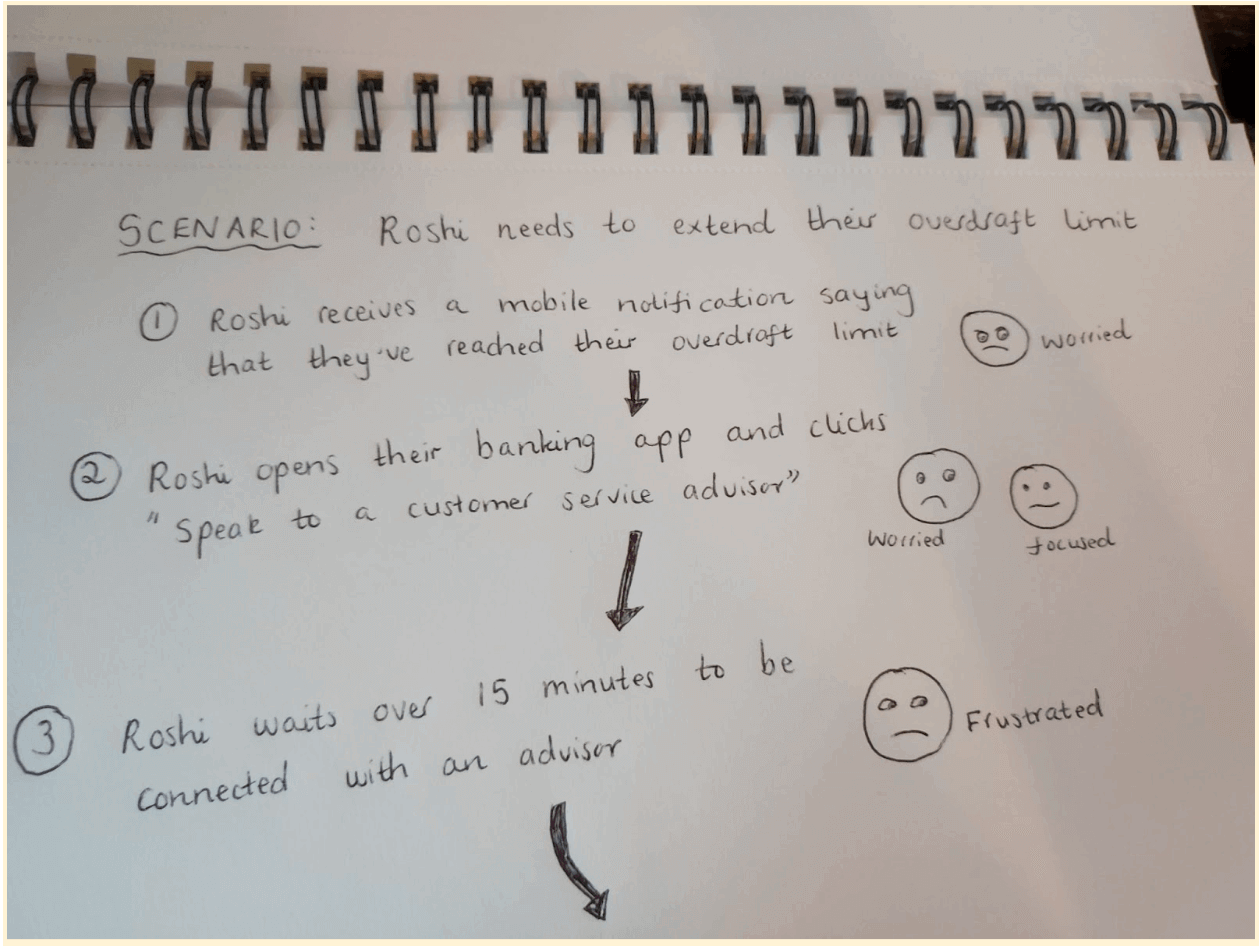 SCENARIO: Roshi needs to extend their overdraft limit
① Roshi receives a mobile notification saying
that they've reached their overdraft limit
Worried
② Roshi opens their banking app and clicks
"Speak to a customer service advisor"
Worried focused
③ Roshi waits over 15 minutes to be
connected with an advisor
Frustrated